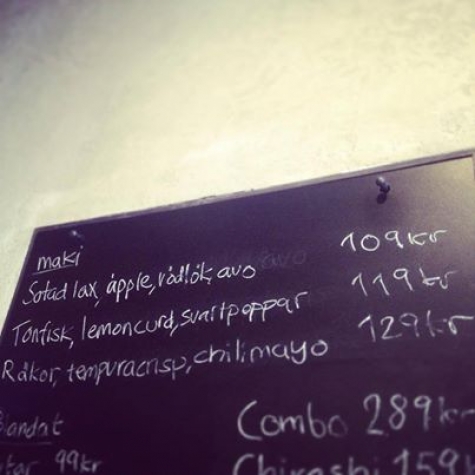 maki
Sotad lax, äpple, rödlök, avo 109kr
Tonfisk, lemoncurd, svartpeppar 119kr
Räkor, tempuracrisp, chilimayo 129kr
Blandat Combo 289kr
99kr Chirashi 159